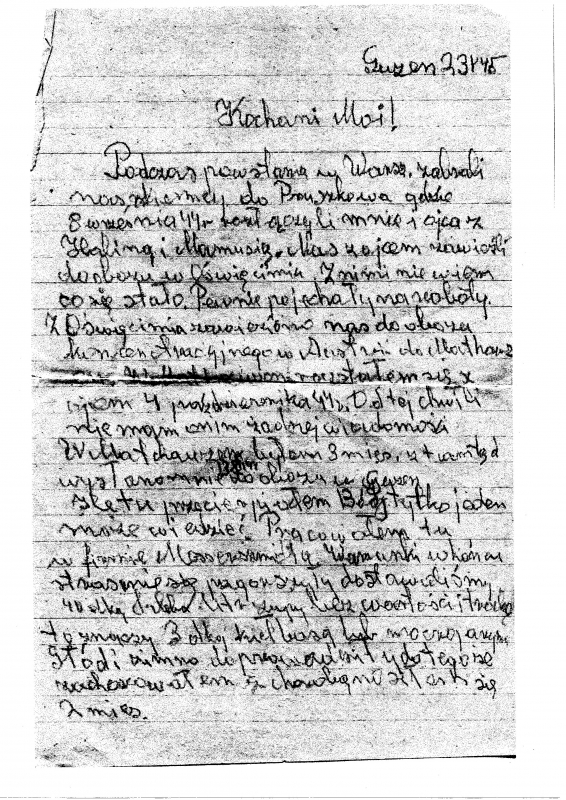 Guzen 23 V 45
Kochani Moi!
Podczas powstania w Warsz. zabrali
nas niemcy do Pruszkowa gdzie
8 września 44 r rozłączyli mnie i ojca z
Haliną i Mamusią. Nas z ojcem zawieźli
do obozu w Oświęcimiu. Z nimi nie wiem
co się stało. Pewnie pojechały na roboty.
Z Oświęcimia zawieziono nas do obozu
koncentracyjnego w Austrii do Mathau
rozstałem się z
ojcem 4 października 44 r. Od tej chwili
nie mam o nim żadnej wiadomości
W Mathauzen byłem 3 mies.
wysłano mnie do obozu w Guzen
że tu przecierpiałem Bóg tylko jeden
może wiedzieć. Pracowałem tu
w firmie Messerszmitta. Warunki w końcu
strasznie się pogorszyły dostawaliśmy
40 dkg chleba litr zupy bez wartości i trochę
to znaczy 3 dkg kiełbasy lub
Głód i zimno doprowadziły do tego że
zachorowałem
2 mies.